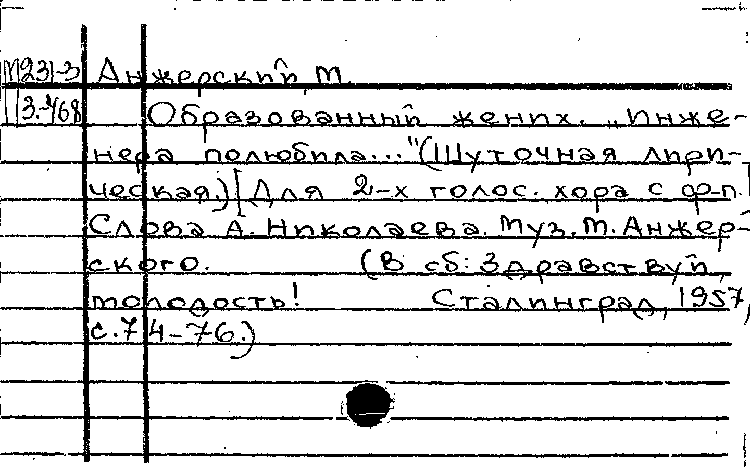 М231-3 Анжерский, М.
3.468 Образованный жених. „Инже-
нера полюбила..." (Шуточная лири-
ческая.) [Для 2-х голос. хора с ф-п.]
Слова А. Николаева. Муз. М. Анжер-
ского. (В сб: Здравствуй,
молодость! Сталинград, 1957,
с. 74-76.)